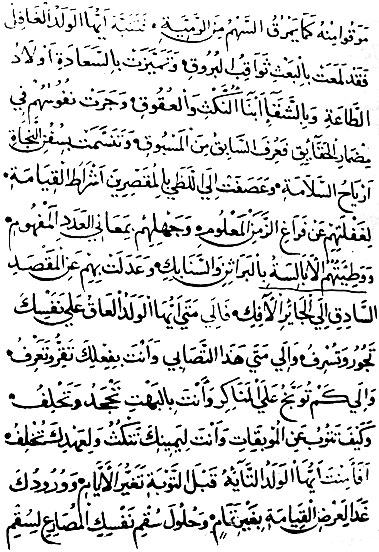 مرقوا منه كما يمرق السهم من الرمية . فتنبه أيها الولد الغافل
فقد لمعت بالبعث ثواقب البروق . وتميزت بالسعادة أولاد
الطاعة . وبالشقآ أبنآ النكث والعقوق . وجرت نفوسهم في
مضمار الحقايق فعرف السابق من المسبوق . وتنسمت بسفن النجاة
أرياح السلامة . وعصفت إلي اللظي بالمقصرين أشراط القيامة .
لغفلتهم عن فراغ الزمن المعلوم . وجهلهم بمعاني العدد المفهوم .
ووطيتهم الأبالسة بالبراثن والسنابك . وعدلت بهم عن المقصد
الصادق إلي الجائر الآفك . فإلي متي أيها الولد العاق علي نفسك
تجور وتسرف . وإلي متي هذا التصابي وأنت بفعلك تقر وتعرف .
وإلي كم توبخ علي المناكر وأنت بالبهت تجحد وتحلف .
وكيف تتوب عن الموبقات وأنت ليمينك تنكث ولعهدك تخلف .
أفأمنت أيها الولد التايه . قبل التوبة تغير الأيام . وورودك
غدا لعرض القيامة بغير تمام . وحلول سقيم نفسك المصارع لسقيم